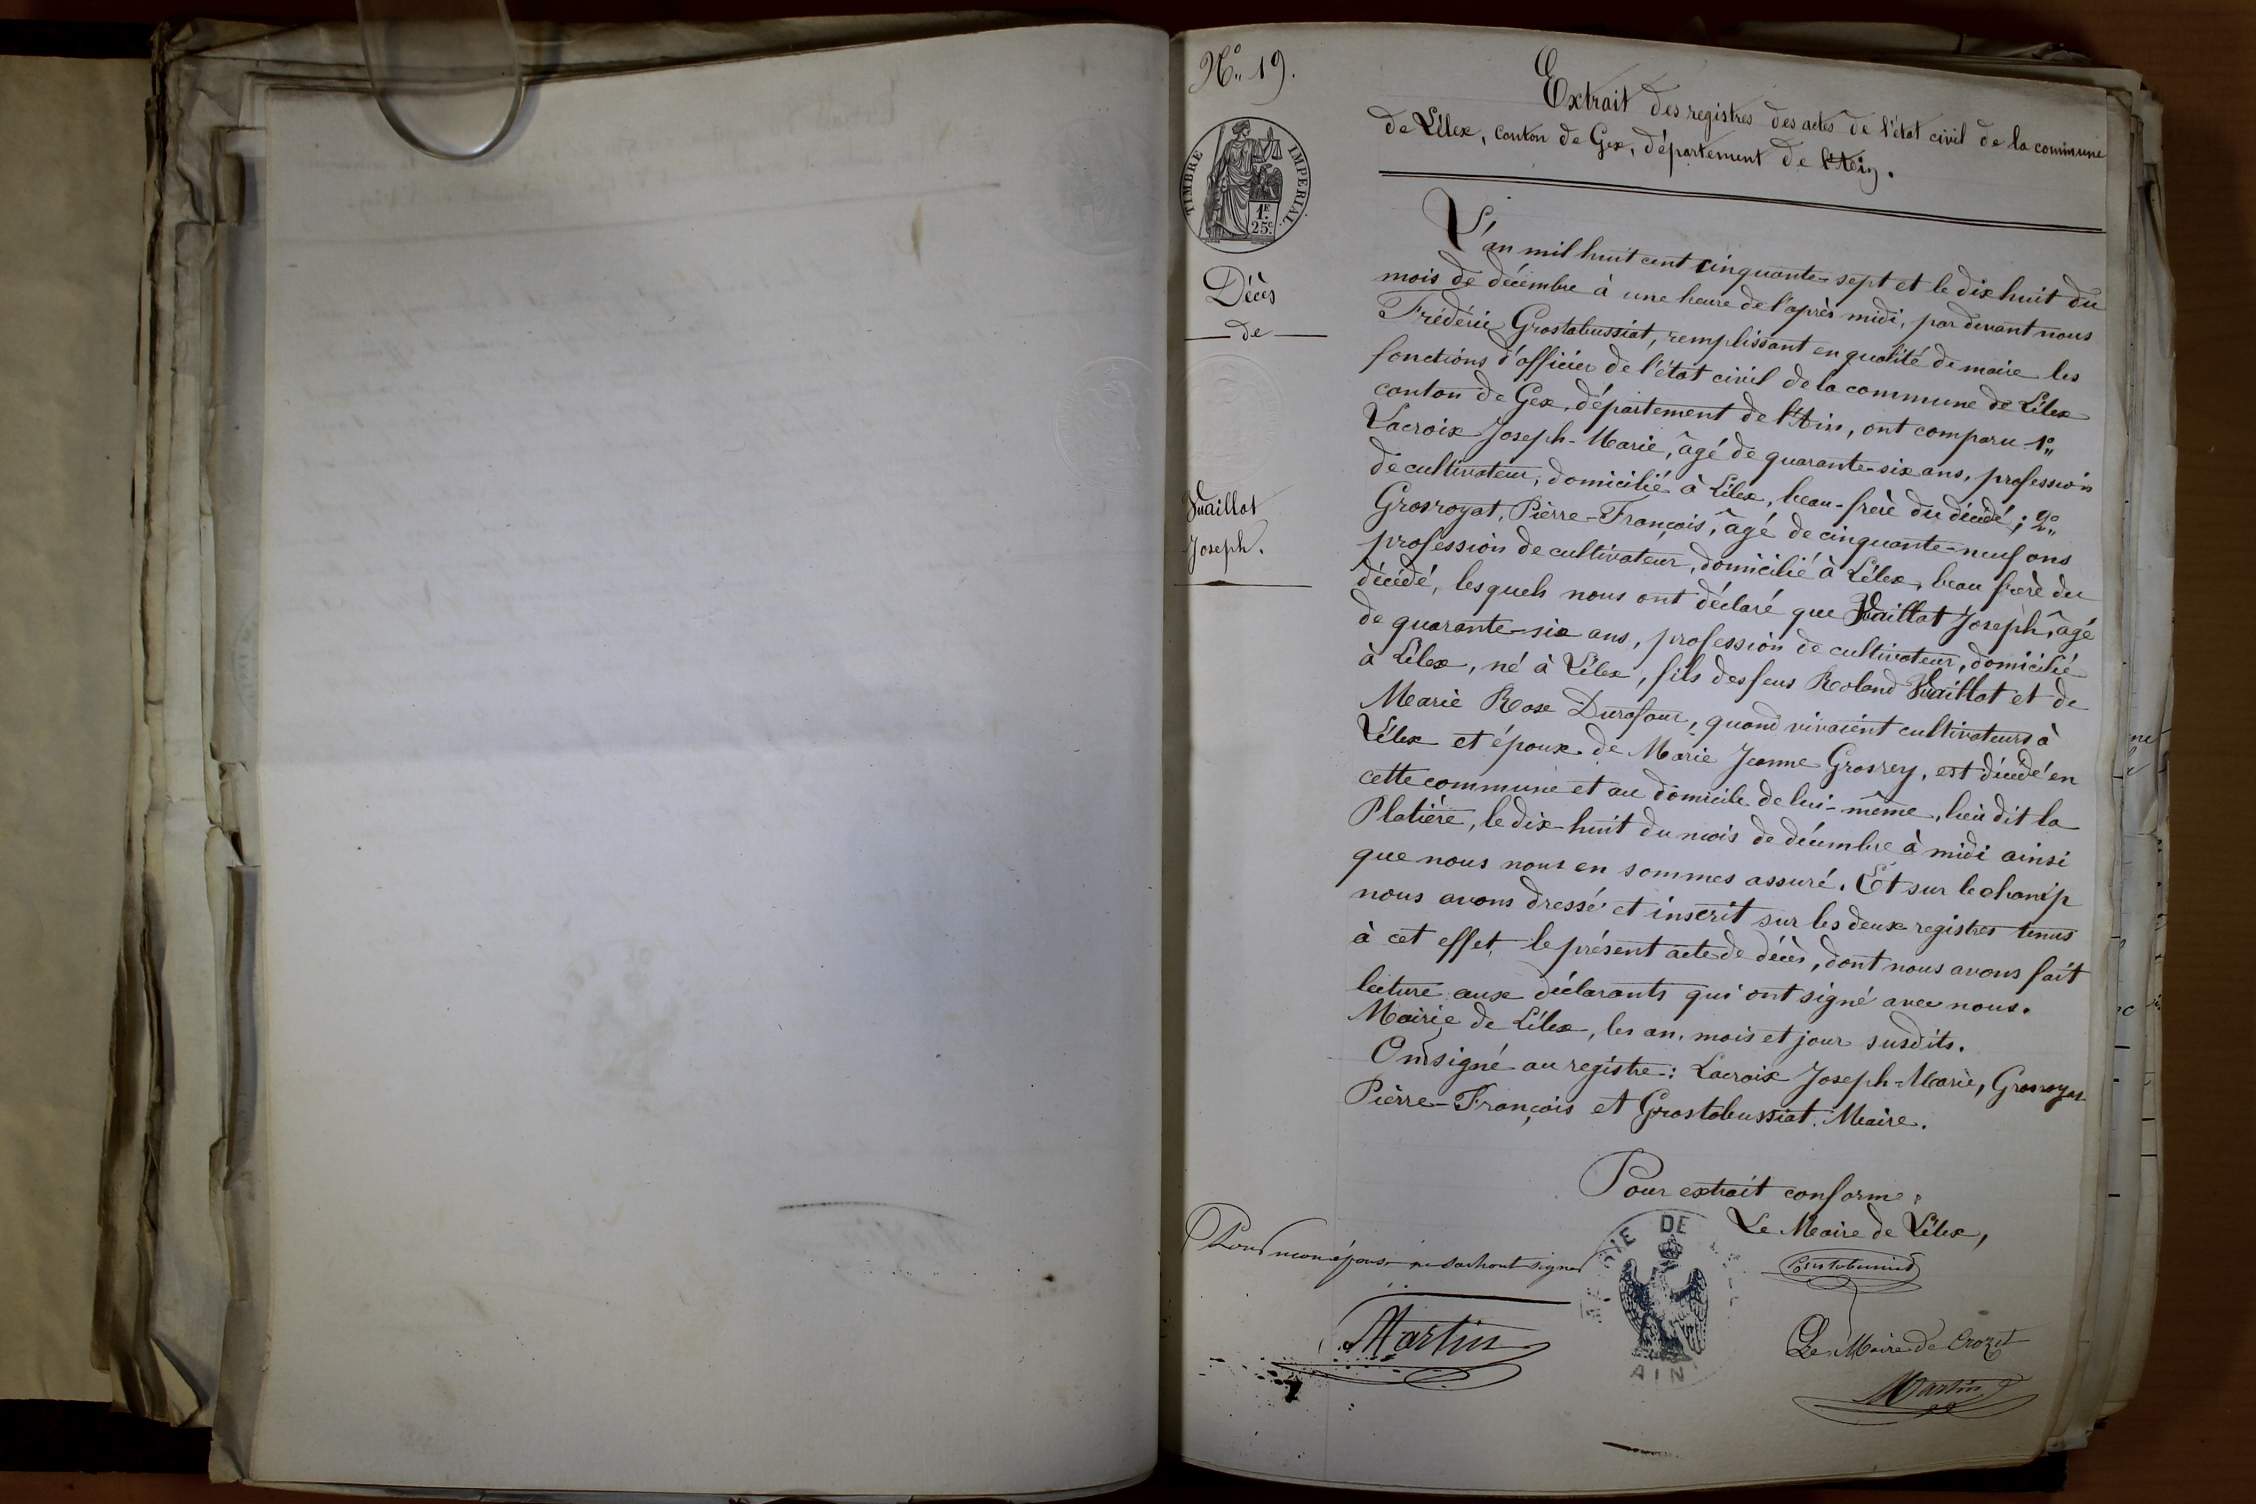 No 19.
Extrait des registres des actes de l'état civil de la commune
de Lélex, canton de Gex, département de l'Ain.
TIMBRE IMPERIAL
1F
25c
Décès
de
Vuaillat
Joseph.
L'an mil huit cent cinquante-sept et le dix huit du
mois de décembre à une heure de l'après midi, par devant nous
Frédéric Grostabussiat, remplissant en qualité de maire les
fonctions d'officier de l'état civil de la commune de Lélex
canton de Gex, département de l'Ain, ont comparu 1o
Lacroix Joseph-Marie, âgé de quarante-six ans, profession
de cultivateur, domicilié à Lélex, beau-frère du décédé; 2o
Grosroyat, Pierre-François, âgé de cinquante-neuf ans
profession de cultivateur, domicilié à Lélex, beau frère du
décédé, lesquels nous ont déclaré que Vuaillat Joseph, âgé
de quarante-six ans, profession de cultivateur, domicilié
à Lélex, né à Lélex, fils des feus Roland Vuaillat et de
Marie Rose Durafour, quand vivaient cultivateurs à
Lélex et époux de Marie Jeanne Grosrey, est décédé en
cette commune et au domicile de lui-même, lieu dit la
Platière, le dix-huit du mois de décembre à midi ainsi
que nous nous en sommes assuré. Et sur le champ
nous avons dressé et inscrit sur les deux registres tenus
à cet effet le présent acte de décès, dont nous avons fait
lecture aux déclarants qui ont signé avec nous.
Mairie de Lélex, les an, mois et jour susdits.
Ont signé au registre: Lacroix Joseph-Marie, Grosroyat
Pierre-François et Grostabussiat, Maire.
Pour extrait conforme:
Le Maire de Lélex,
Grostabussiat
Pour mon épouse ne sachant signer
Martin
MAIRIE DE
AIN
Le Maire de Crozet
Martin